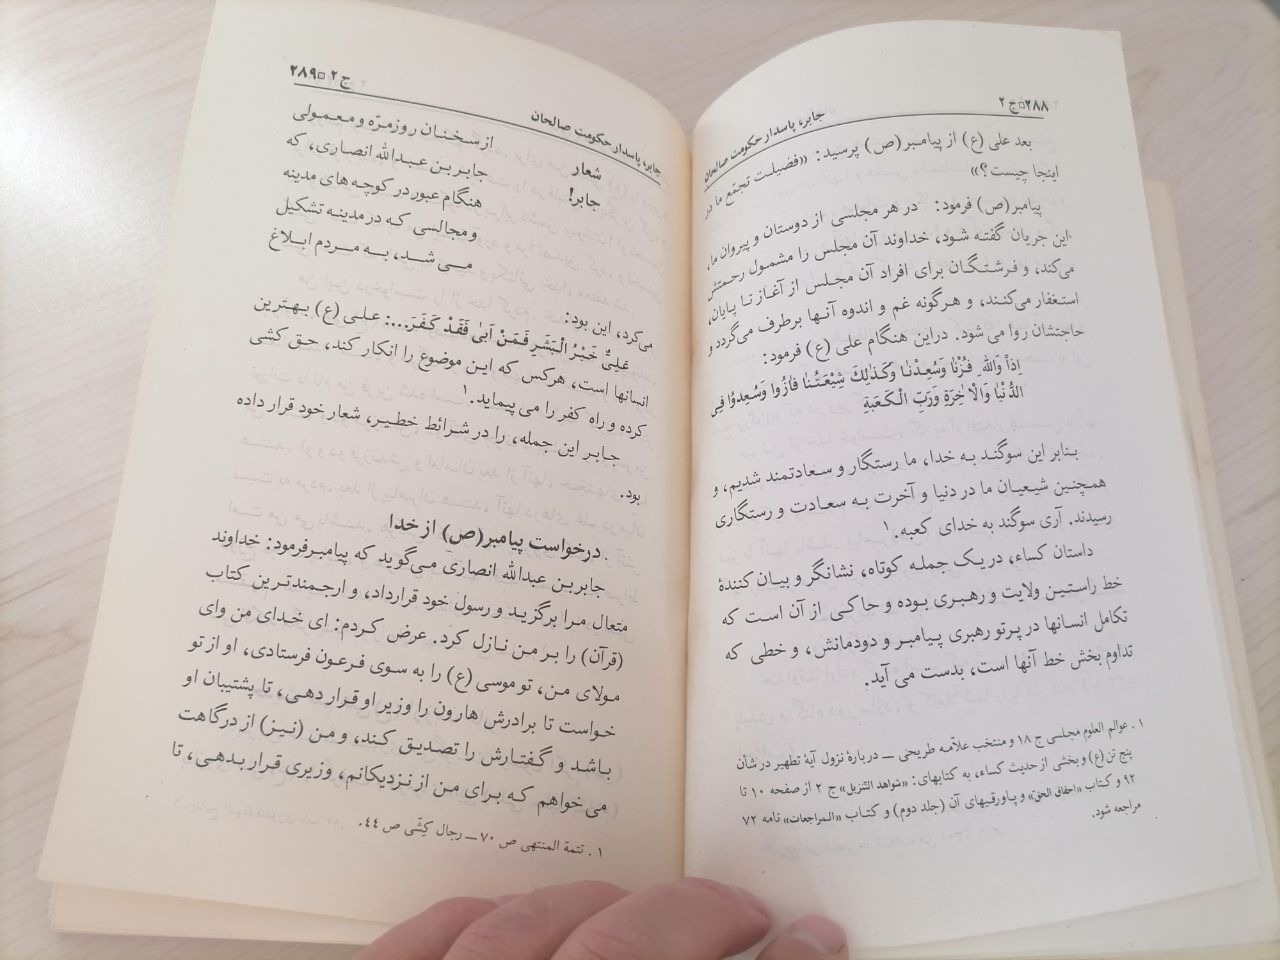 ۲۸۸□ج ۲
جابر، پاسدار حکومت صالحان
بعد علی (ع) از پیامبر (ص) پرسید: «فضیلت تجمّع ما در
اینجا چیست؟»
پیامبر(ص) فرمود: در هر مجلسی از دوستان و پیروان ما،
این جریان گفته شود، خداوند آن مجلس را مشمول رحمتش
می‌کند، و فرشتگان برای افراد آن مجلس از آغاز تا پایان،
استغفار می‌کنند، و هرگونه غم و اندوه آنها برطرف می‌گردد و
حاجتشان روا می شود. دراین هنگام علی (ع) فرمود:
اِذاً وَاللهِ فُزْنٰا وَسُعِدْنٰا وَكَذٰلِكَ شيٖعَتُنٰا فٰازُوا وَسُعِدُوا فِى
الدُّنْيٰا وَالْاٰخِرَةِ وَرَبِّ الْكَعْبَةِ
بنابر این سوگند به خدا، ما رستگار و سعادتمند شدیم، و
همچنین شیعیان ما در دنیا و آخرت به سعادت و رستگاری
رسیدند. آری سوگند به خدای کعبه.۱
داستان کساء، دریک جمله کوتاه، نشانگر و بیان کنندهٔ
خط راستین ولایت و رهبری بوده و حاکی از آن است که
تکامل انسانها در پرتو رهبری پیامبر و دودمانش، و خطی که
تداوم بخش خط آنها است، بدست می آید.
۱ . عوالم العلوم مجلسی ج ۱۸ و منتخب علّامه طریحی ــ دربارهٔ نزول آیهٔ تطهیر در شأن
پنج تن(ع) و بخشی از حدیث کساء، به کتابهای: «شواهد التّنزیل» ج ۲ از صفحه ۱۰ تا
۹۲ و کتاب «احقاق الحق» و پاورقیهای آن (جلد دوم) و کتاب «المراجعات» نامه ۷۲
مراجعه شود.
ج ۲□۲۸۹
جابر، پاسدار حکومت صالحان
شعار
جابر!
از سخنان روزمرّه و معمولی
جابر بن عبدالله انصاری، که
هنگام عبور در کوچه های مدینه
و مجالسی که در مدینه تشکیل
می شد، به مردم ابلاغ
می‌کرد، این بود:
عَلِیٌّ خَیْرُ الْبَشَرِ فَمَنْ اَبیٰ فَقَدْ کَفَرَ...: علی (ع) بهترین
انسانها است، هرکس که این موضوع را انکار کند، حق کشی
کرده و راه کفر را می پیماید.۱
جابر این جمله، را در شرائط خطیر، شعار خود قرار داده
بود.
درخواست پیامبر(ص) از خدا
جابربن عبدالله انصاری می‌گوید که پیامبر فرمود: خداوند
متعال مرا برگزید و رسول خود قرارداد، و ارجمندترین کتاب
(قرآن) را بر من نازل کرد. عرض کردم: ای خدای من وای
مولای من، تو موسی (ع) را به سوی فرعون فرستادی، او از تو
خواست تا برادرش هارون را وزیر او قرار دهی، تا پشتیبان او
باشد و گفتارش را تصدیق کند، و من (نیز) از درگاهت
می خواهم که برای من از نزدیکانم، وزیری قرار بدهی، تا
۱ . تتمة المنتهی ص ۷۰ ــ رجال کِشّی ص ۴۴.